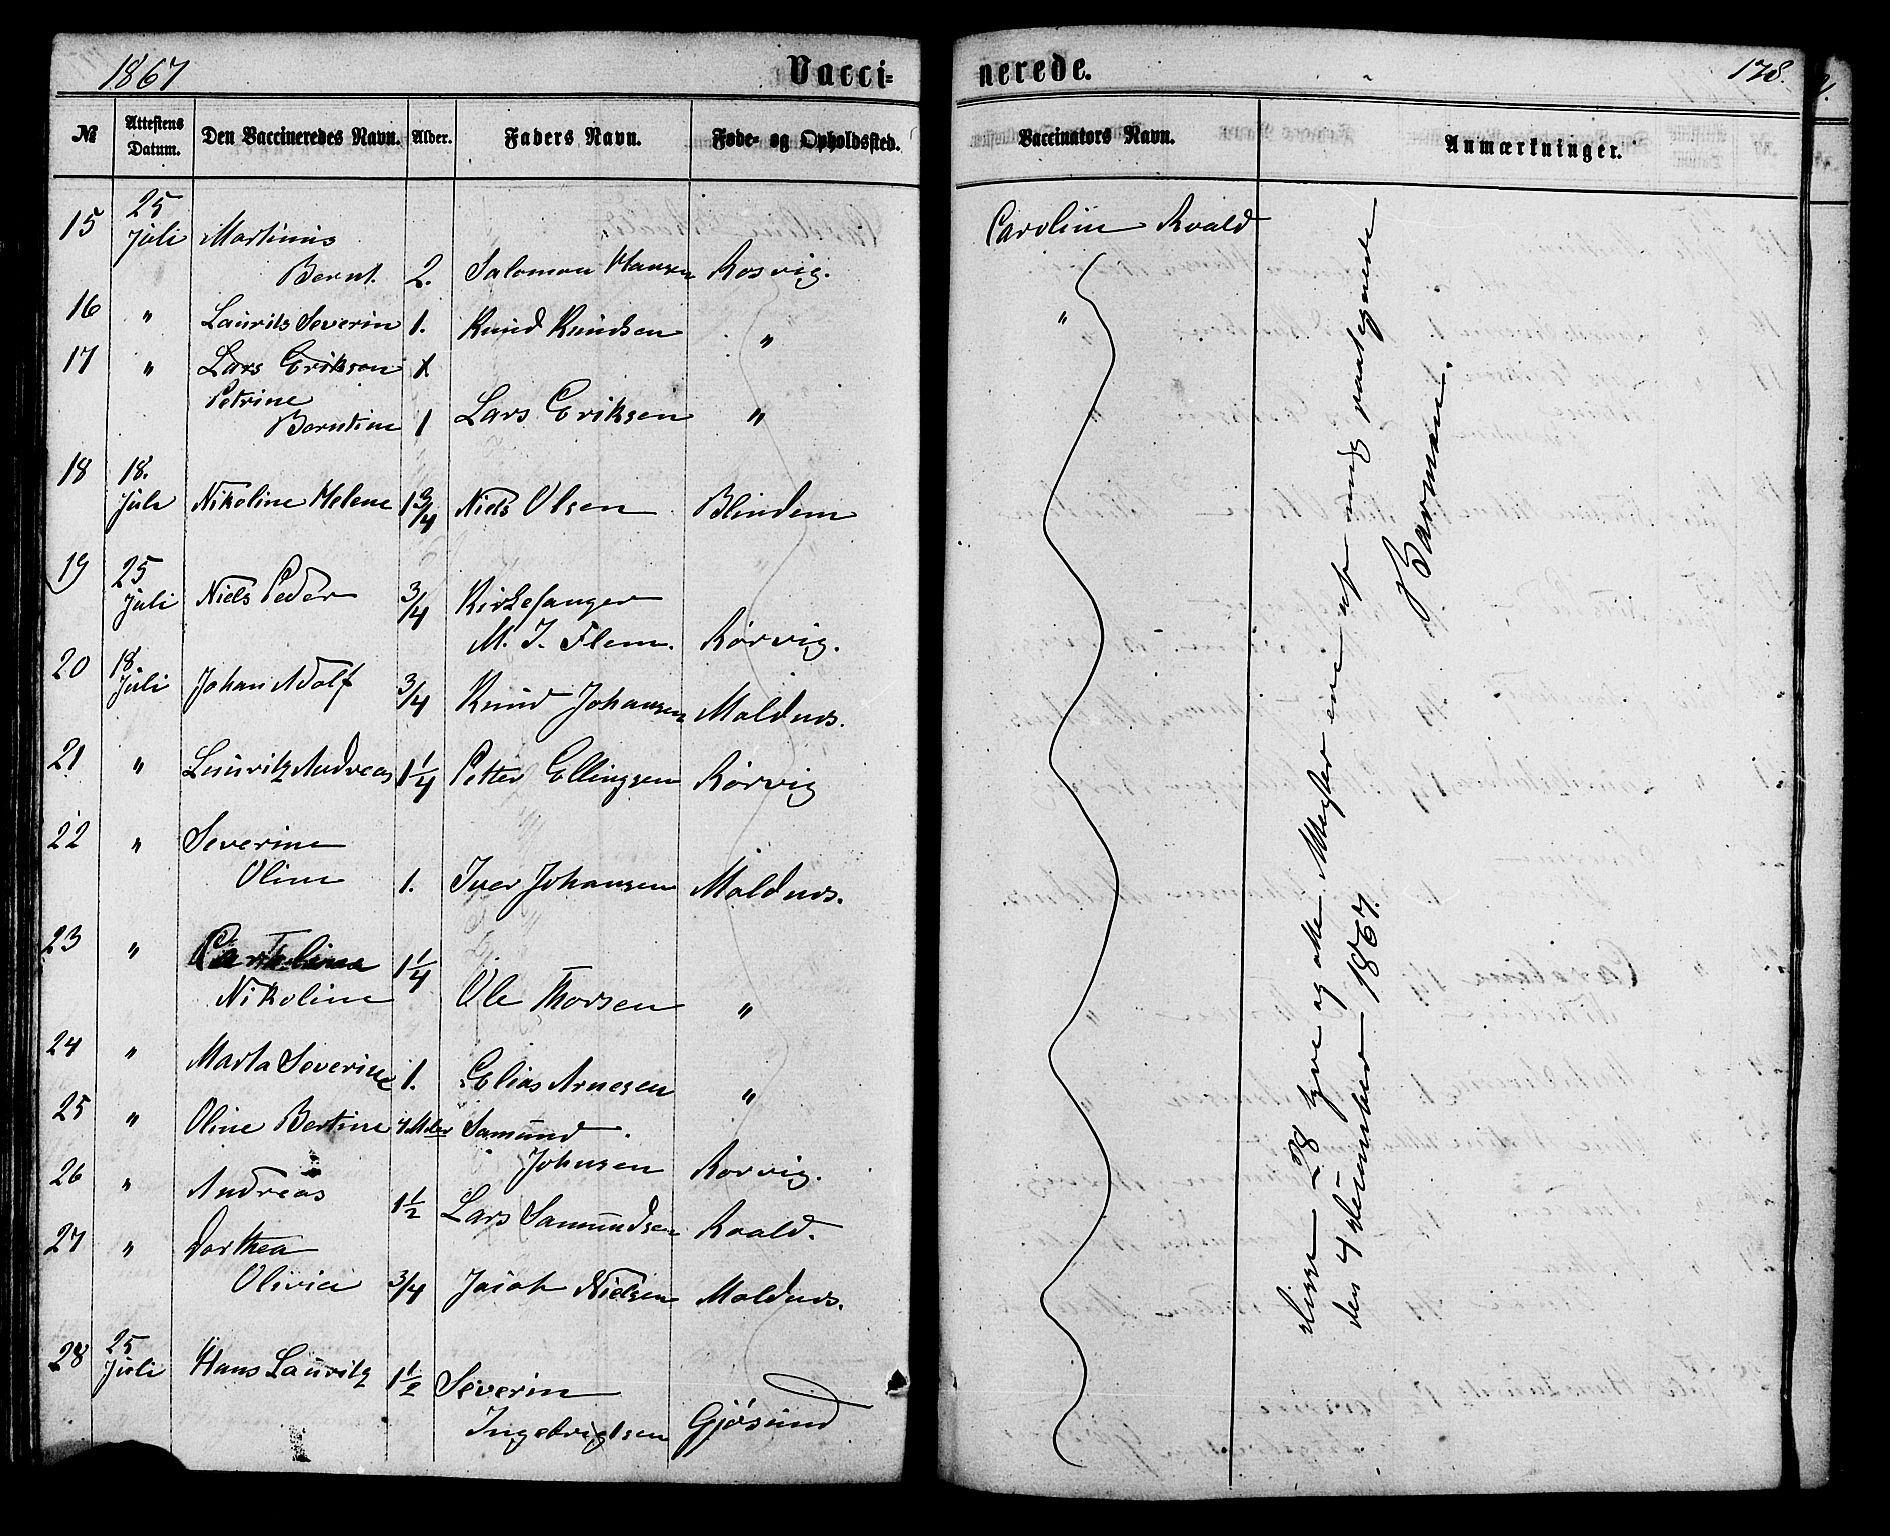 1867 Vacci=
№ Attestens Datum. Den Vaccineredes Navn. Alder. Faders Navn. Føde- og Opholdssted.
15 25 Juli Martinus
Bernt. 2. Salomon Hansen Rosvig.
16 " Laurits Severin 1. Knud Knudsen "
17 " Lars Eriksen 1
Petrine
Berntine 1 Lars Eriksen "
18 18. Juli Nikoline Helene 1 3/4 Niels Olsen Blindem
19 25 Juli Niels Peder 3/4 Kirkesanger
M. J. Flem. Rørvig.
20 18. Juli Johan Adolf 3/4 Knud Johansen Moldnes.
21 " Lauritz Andreas 1 1/4 Petter Ellingsen Rørvig
22 " Severine
Oline 1. Iver Johansen Moldnes.
23 " 1 1/4
Nikoline Ole Thorsen "
24 " Marta Severine 1. Elias Arnesen "
25 " Oline Bertine 4 Mdr Samund
Johnsen Rørvig.
26 " Andreas 1 1/2 Lars Samundsen Roald.
27 " Dorthea
Olivia 3/4 Jacob Nielsen Moldnes.
28 25 Juli Hans Lauritz 1 1/2 Severin
Ingebrigtsen Gjøsund
nerede. 178.
Vaccinators Navn. Anmærkninger.
Caroline Roald
"
Disse 28 tyve og otte Attester ere af mig paategnede
den 4 December 1867.
Barman.